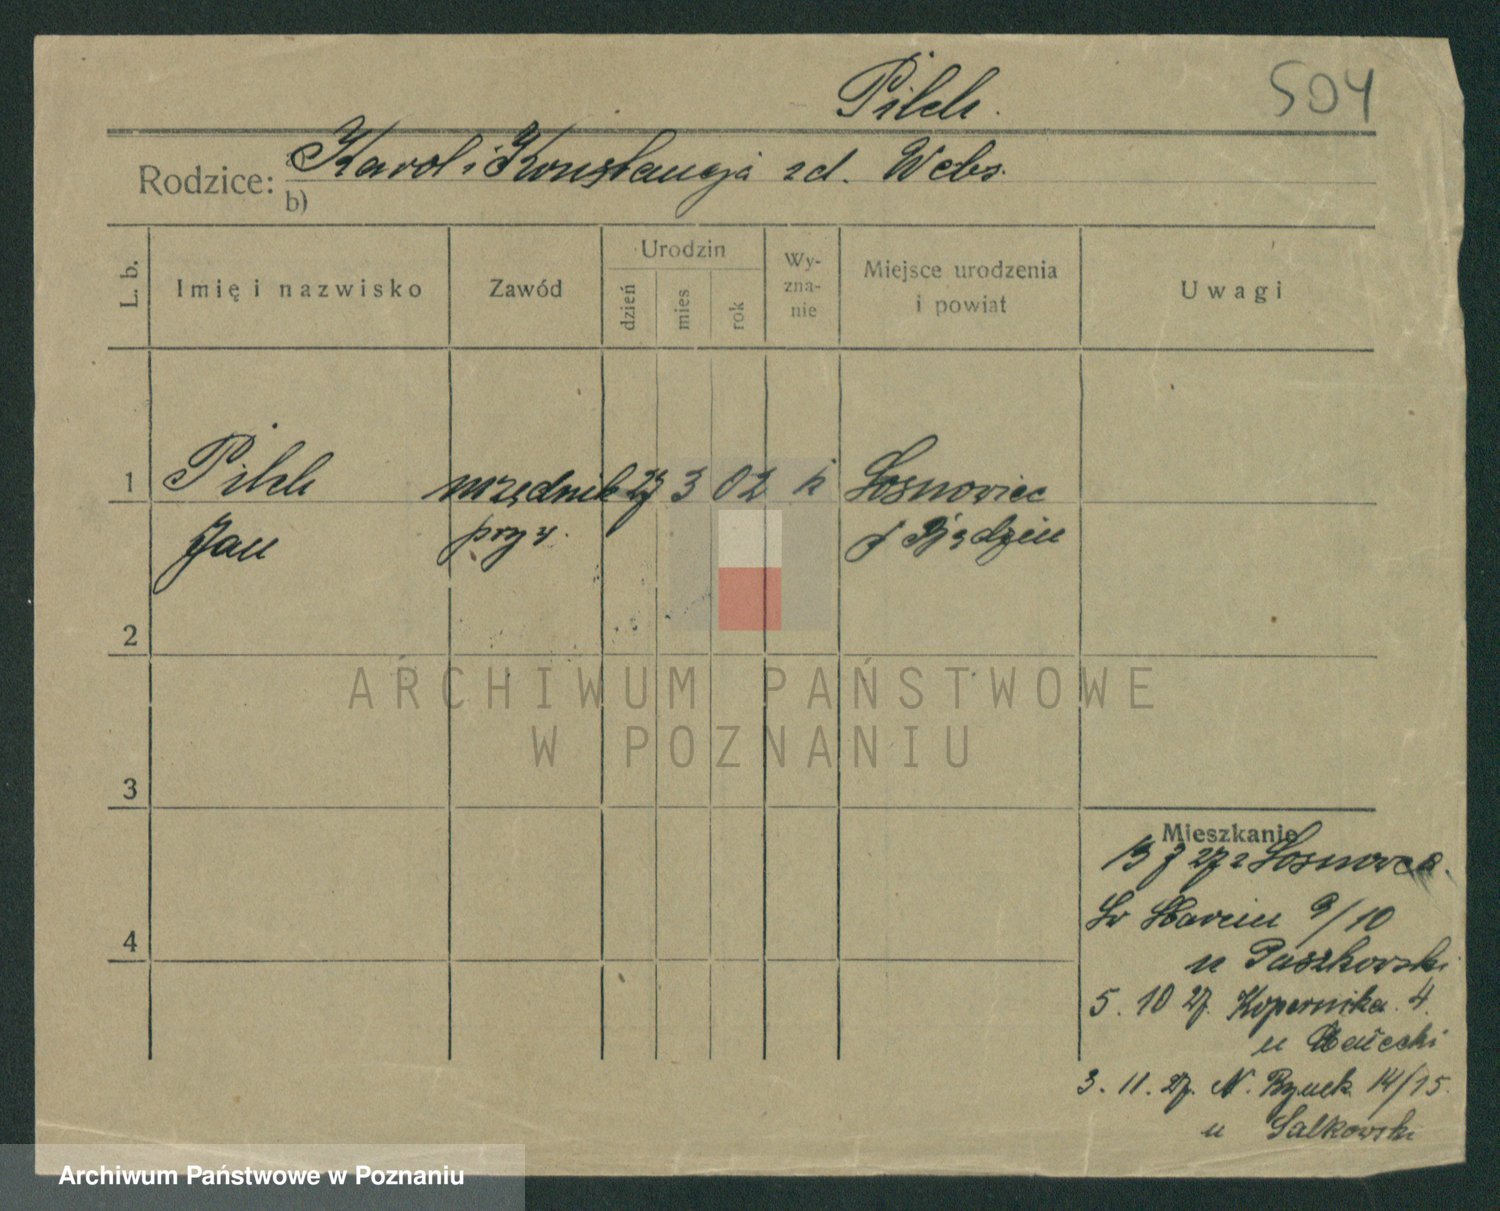 Pilch.
504
Rodzice: a) Karol i Konstancja zd. Webs.
b)
L. b. Imię i nazwisko Zawód Urodzin dzień mies rok Wy-zna-nie Miejsce urodzenia i powiat Uwagi
1 Pilch urzędnik 27 3 02 k Sosnowiec
Jan pryw. p Będzin
2
ARCHIWUM PAŃSTWOWE
W POZNANIU
3
Mieszkanie
13 7 27 z Sosnowca.
4
Św Marcin 9/10
u Paszkowski
5. 10 27. Kopernika 4.
u
3. 11. 27. N. Rynek 14/15.
u Salkowski
Archiwum Państwowe w Poznaniu